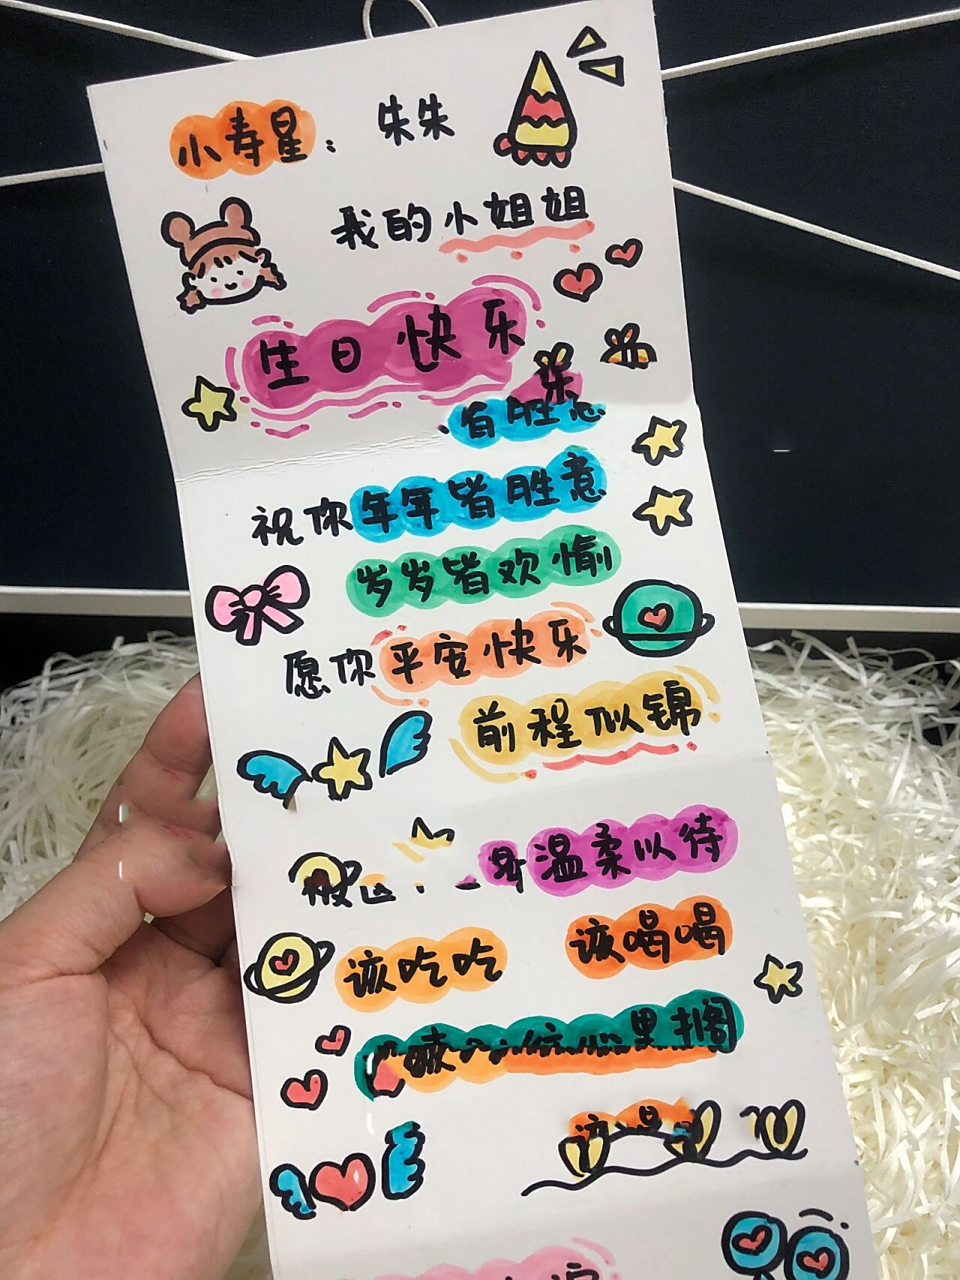 小寿星：朱朱
我的小姐姐
生日快乐
乐
胜意
祝你年年皆胜意
岁岁皆欢愉
愿你平安快乐
前程似锦
温柔以待
该吃吃
该喝喝
里搁